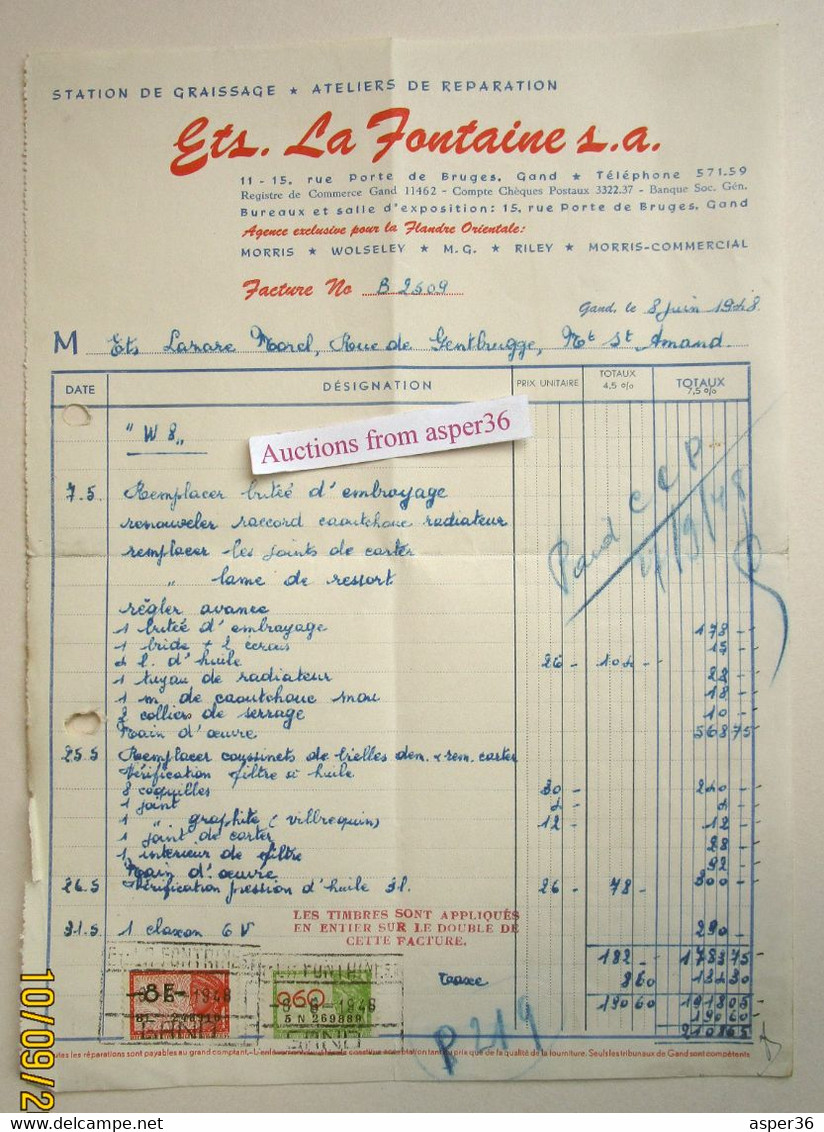 STATION DE GRAISSAGE ★ ATELIERS DE REPARATION
Ets. La Fontaine s.a.
11 - 15, rue Porte de Bruges, Gand ★ Téléphone 571.59
Registre de Commerce Gand 11462 - Compte Chèques Postaux 3322.37 - Banque Soc. Gén.
Bureaux et salle d'exposition: 15, rue Porte de Bruges, Gand
Agence exclusive pour la Flandre Orientale:
MORRIS ★ WOLSELEY ★ M.G. ★ RILEY ★ MORRIS-COMMERCIAL
Facture No B 2509
Gand, le 8 juin 1948.
M Ets Lazare Morel, Rue de Gentbrugge, Mt St Amand.
DATE DÉSIGNATION PRIX UNITAIRE TOTAUX 4,5 % TOTAUX 7,5 %
"W 8"
Auctions from asper36
7.5. Remplacer butée d'embrayage
renouveler raccord caoutchouc radiateur
remplacer les joints de carter
" lame de ressort
régler avance
1 butée d'embrayage 178 -
1 bride + 2 écrous 15 -
4 l. d'huile 26 - 104 -
1 tuyau de radiateur
1 m. de caoutchouc mou
2 colliers de serrage 10 -
Main d'œuvre 568 75
25.5 Remplacer coussinets de bielles dém. & rem. carter
Vérification filtre à huile
8 coquilles 30 - 240 -
1 joint
1 " graphité (villrequin) 12 - 12 -
1 joint de carter
1 intérieur de filtre
Main d'œuvre 300 -
26.5 Vérification pression d'huile 3 l. 26 - 78 -
31.5. 1 claxon 6 V 290 -
LES TIMBRES SONT APPLIQUÉS
EN ENTIER SUR LE DOUBLE DE
CETTE FACTURE.
182 - 1783 75
taxe 8 60 134 30
190 60 1918 05
190 60
2108 65
Payé C C P
P 219
LA FONTAINE
GAND
0.60
5 N 269889
LA FONTAINE
GAND
10/09/2
asper36